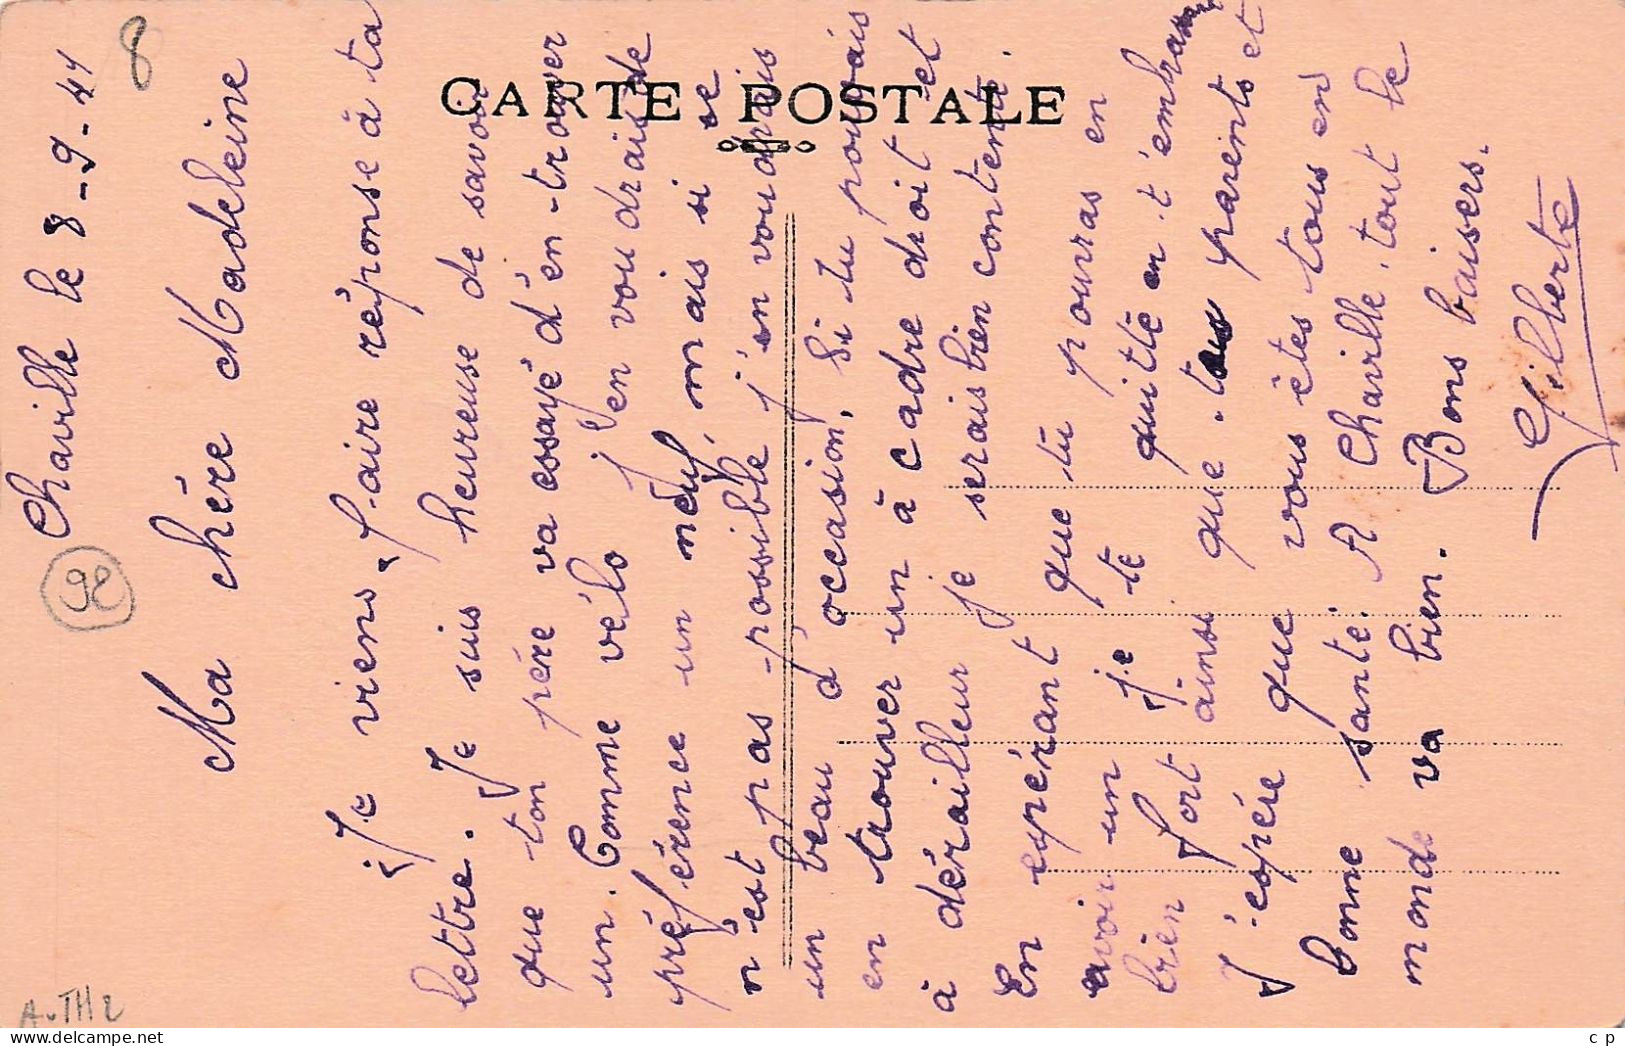 Chaville le 8-9-41
Ma chére Madeleine
Je viens faire réponse à ta
lettre. Je suis heureuse de savoir
que ton pére va essayé d'en-trouver
un. Comme vélo j'en voudrais de
préférence un neuf, mais si ce
n'est pas possible j'en voudrais
un beau d'occasion, si tu pouvais
en trouver un à cadre droit et
à dérailleur je serais bien contente.
En espérant que tu pourras en
avoir un je te quitte en t'embrassant
bien fort ainsi que tes parents et
J'espére que vous êtes tous en
bonne santé. A Chaville, tout le
monde va bien. Bons baisers.
Gilberte
CARTE POSTALE
8
92
A-TH2
www.delcampe.net
cp